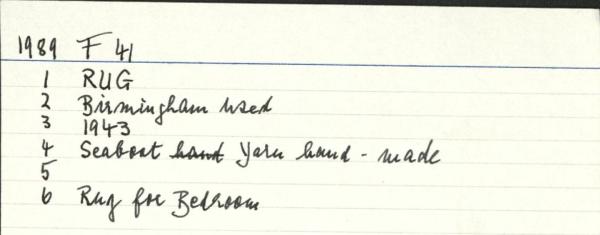 1989 F 41
1 RUG
2 Birmingham used
3 1943
4 Seaboat hand Yarn hand - made
5
6 Rug for Bedroom